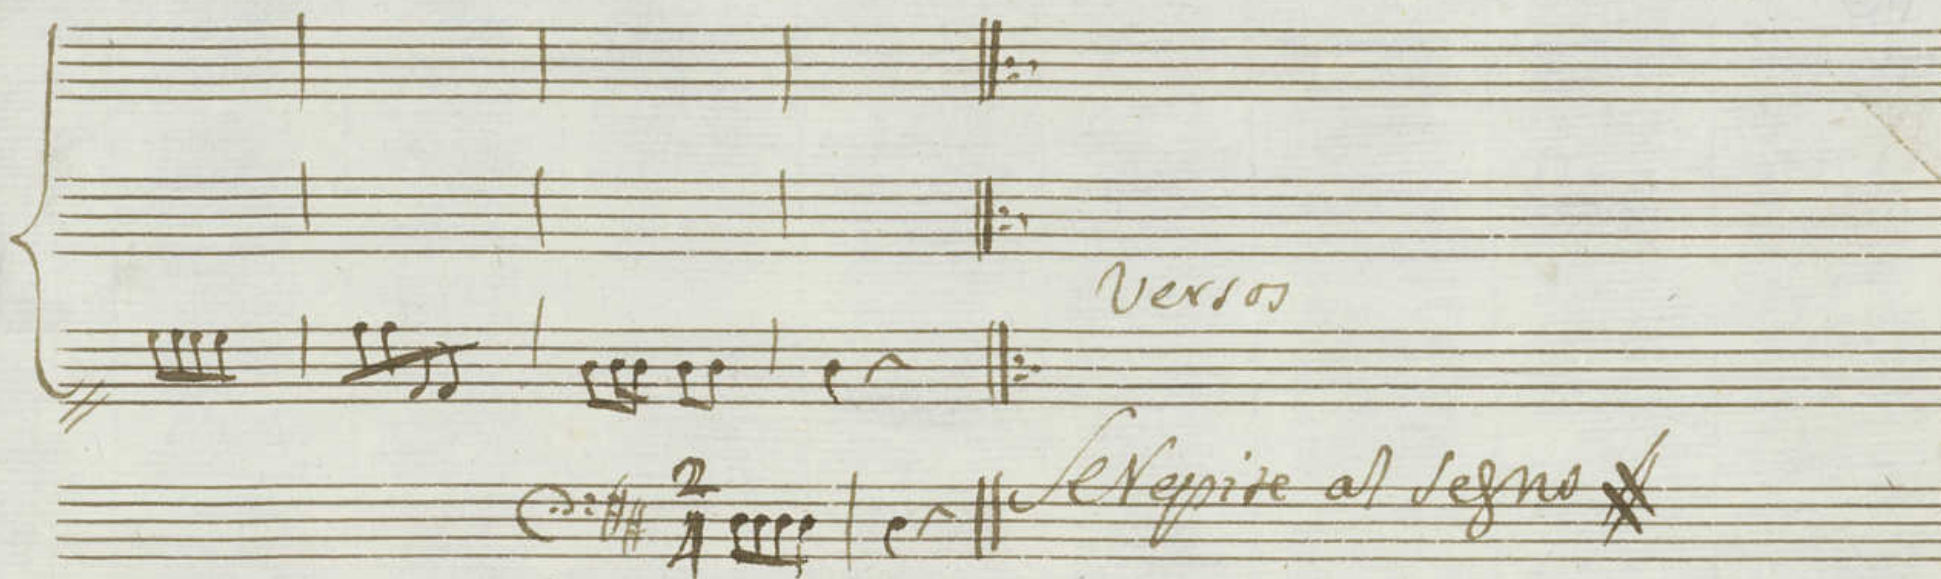 Versos
Se Repite al segno
2
4